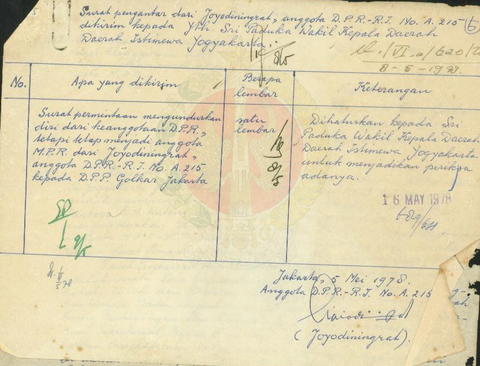 Surat pengantar dari Joyodiningrat, anggota D.P.R.-R.I. No. A. 215
dikirim kepada Yth. Sri Paduka Wakil Kepala Daerah
Daerah Istimewa Yogyakarta.
8-5-1978.
No.
Apa yang dikirim
Berapa
lembar
Keterangan
Surat permintaan mengundurkan
diri dari keanggotaan D.P.R.,
tetapi tetap menjadi anggota
M.P.R. dari Joyodiningrat,
anggota D.P.R.-R.I. No. A. 215
kepada D.P.P. Golkar Jakarta
satu
lembar
Dihaturkan kepada Sri
Paduka Wakil Kepala Daerah
Daerah Istimewa Yogyakarta
untuk menjadikan periksa
adanya.
16 MAY 1978
Jakarta, 5 Mei 1978.
Anggota D.P.R.-R.I. No. A. 215
(Joyodiningrat).